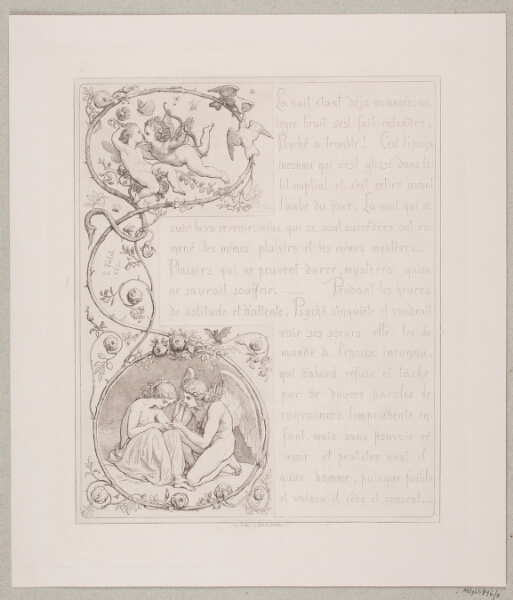 La nuit étant déjà avancée, un
léger bruit s'est fait entendre,
Psyché a tremblé! C'est l'époux
inconnu qui s'est glissé dans le
lit nuptial et s'est retiré avant
l'aube du jour. La nuit qui a
suivi l'a vu revenir, celles qui se sont succédées ont ra
mené les mêmes plaisirs et les mêmes mystères.
Plaisirs qui ne peuvent durer, mystères qu'on
ne saurait souffrir. — Pendant les heures
de solitude et d'attente, Psyché s'inquiète et voudrait
voir ses soeurs. elle les de
mande à l'époux inconnu,
qui d'abord refuse et tâche
par de douces paroles de
convaincre l'imprudente en
fant, mais sans pouvoir ré
ussir et peut-être n'est il
qu'un homme, puisque faible
et vaincu il cède et consent